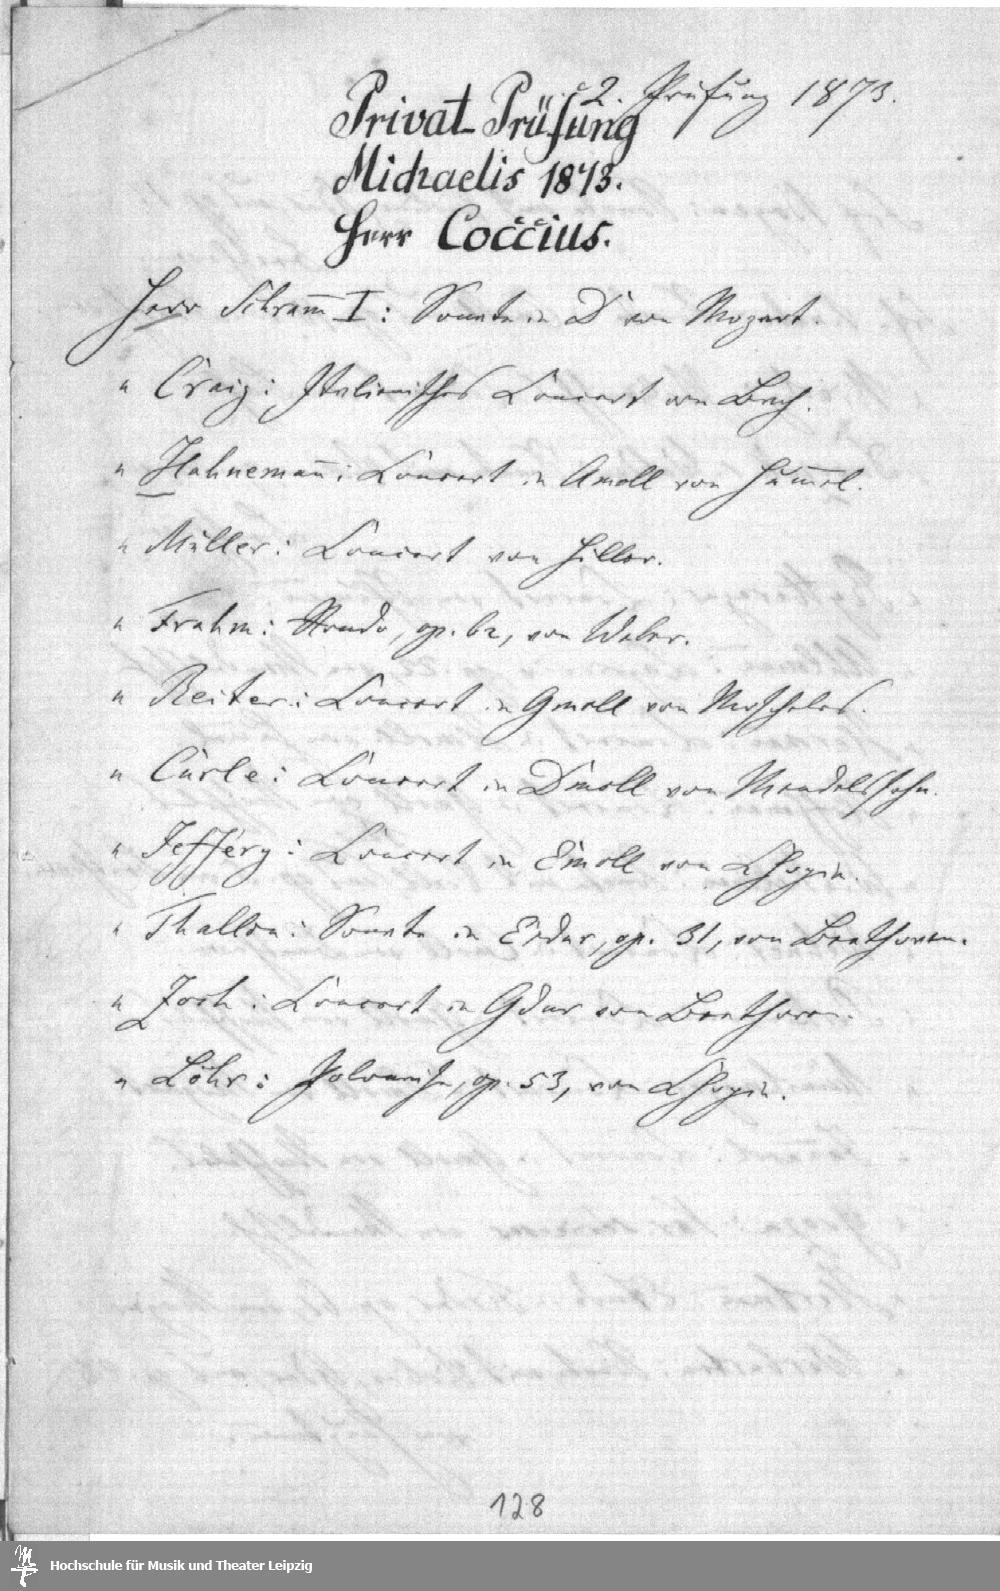 2. Prüfung 1873.
Privat-Prüfung
Michaelis 1873.
Herr Coccius.
Herr Schram̅ I: Sonate in D von Mozart.
" Craig: Italienisches Concert von Bach.
" Hahneman̅: Concert in Amoll von Hum̅el.
" Müller: Concert von Hiller.
" Frahm: Rondo, op. 62, von Weber.
" Reiter: Concert in Gmoll von Moscheles.
" Curle: Concert in Dmoll von Mendelssohn.
" Jefféry: Concert in Emoll von Chopin.
" Thallon: Sonate in Esdur, op. 31, von Beethoven.
" Zoch: Concert in Gdur von Beethoven.
" Löhr: Polonaise, op. 53, von Chopin.
128
Hochschule für Musik und Theater Leipzig